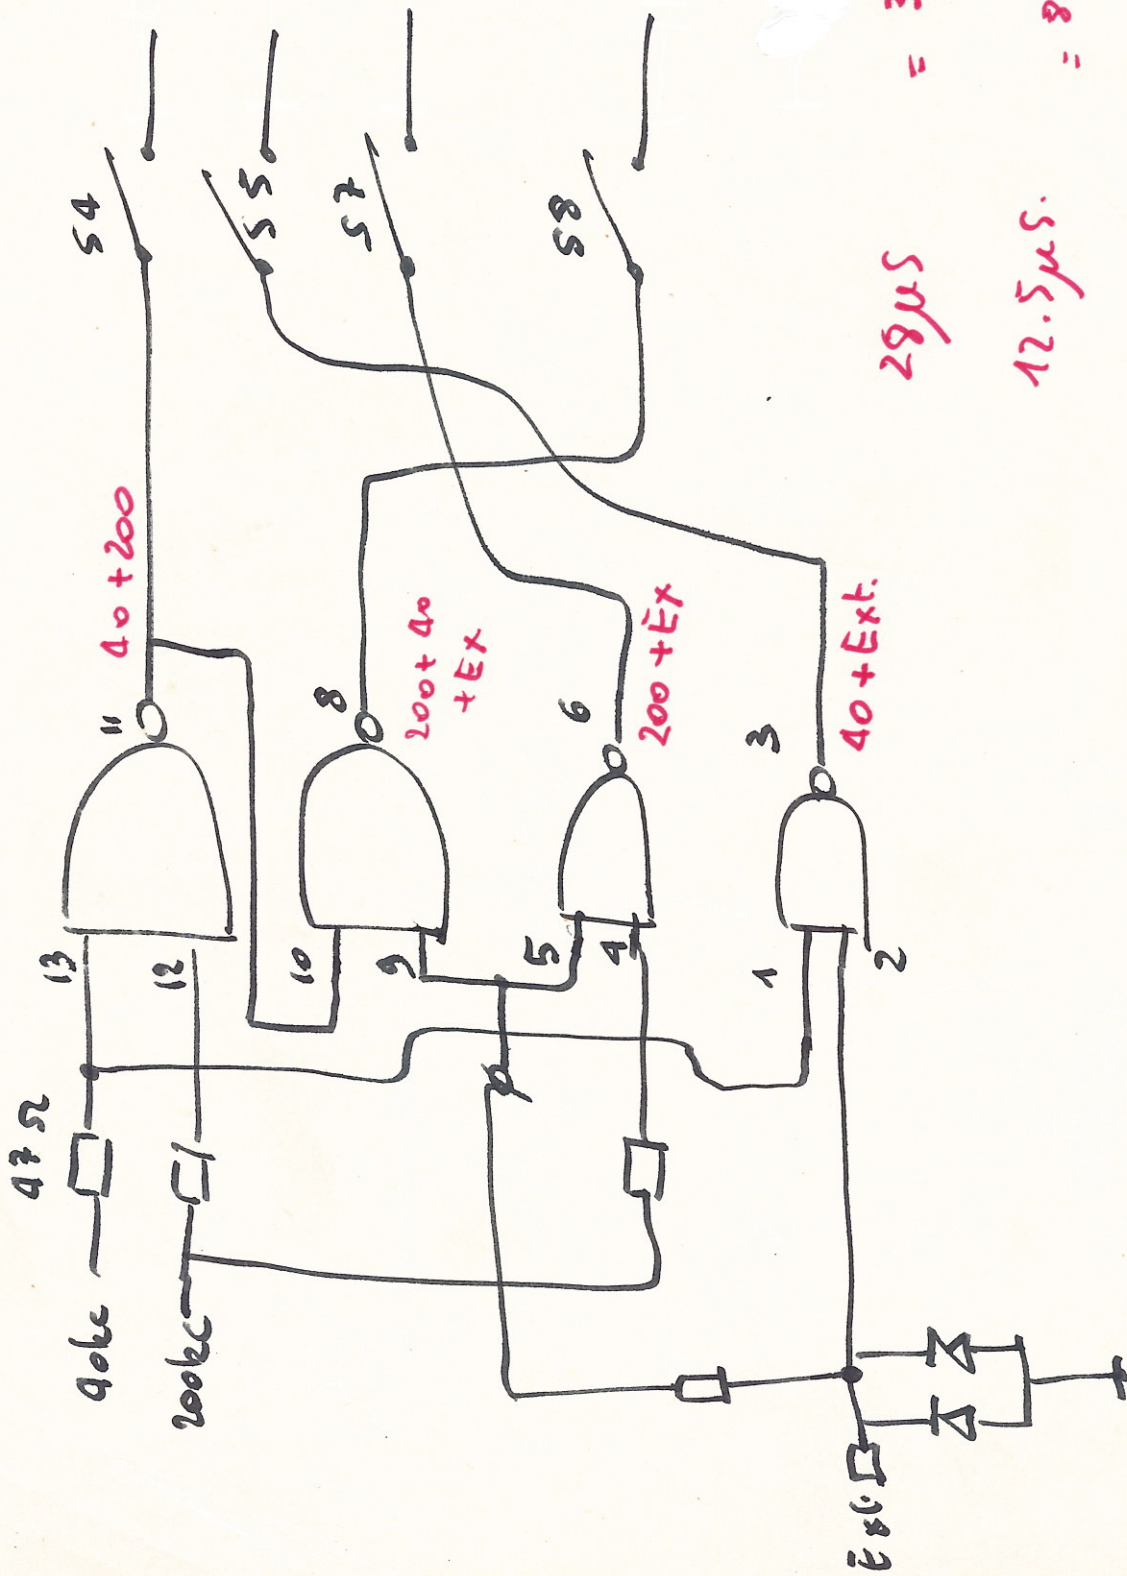 47 Ω
40kc
200kc
Ext.
13
12
10
9
5
4
1
2
11
8
6
3
40+200
200+40
+Ex
200+Ex
40+Ext.
S4
S5
S7
S8
28µs
=
12.5µs.
= 8